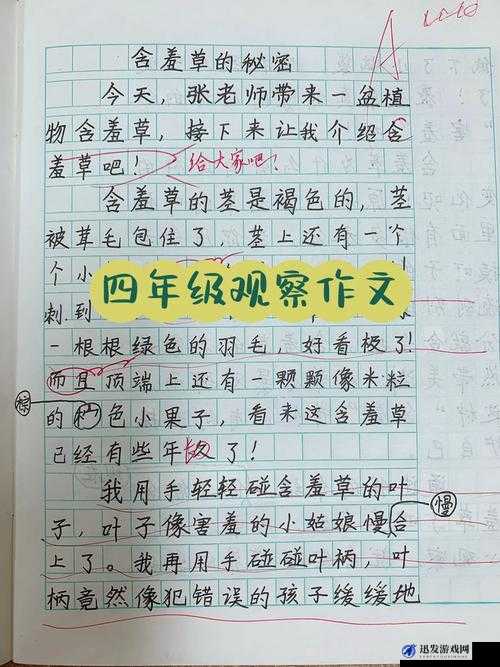 A
含羞草的秘密
今天，张老师带来一盆植
物含羞草，接下来让我介绍含
羞草吧！ 给大家吧？
含羞草的茎是褐色的，茎
被茸毛包住了，茎上还有一个
个小
四年级观察作文
刺.到
一根根绿色的羽毛，好看极了!
而且顶端上还有一颗颗像米粒
的 色小果子，看来这含羞草
棕
已经有些年级了！
我用手轻轻碰含羞草的叶
子，叶子像害羞的小姑娘慢合
慢
上了。我再用手碰碰叶柄，叶
柄竟然像犯错误的孩子缓缓地
迅发游戏网